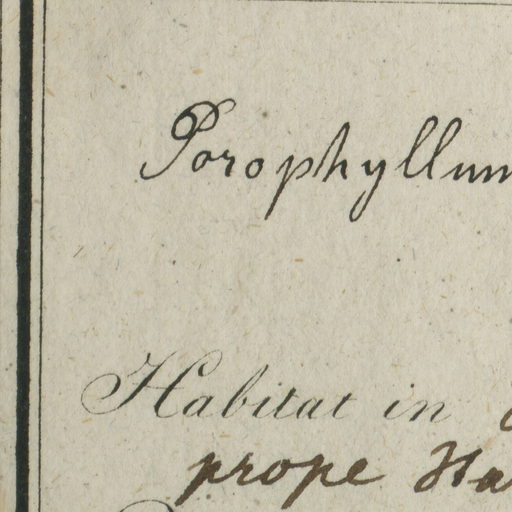 Porophyllum
Habitat in
prope Ha